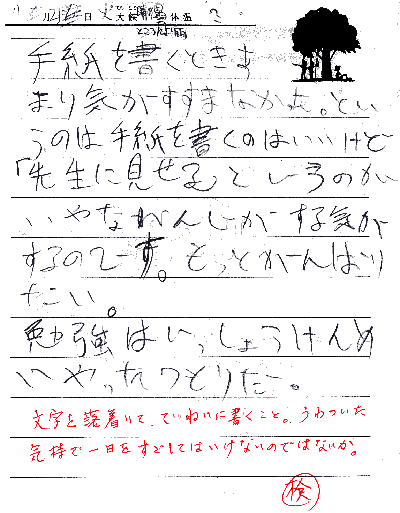 手紙を書くときま
まり気がすすまなかた。とい
うのは手紙を書くのはいいけど
「先生に見せる」というのがい
いやながんじがする気が
するのです。もっとがんばり
たい。
勉強はいっしょうけんめ
いやったつもりだ。
文字を落着いて、ていねいに書くこと。うわついた
気持で一日をすごしてはいけないのではないか。
検